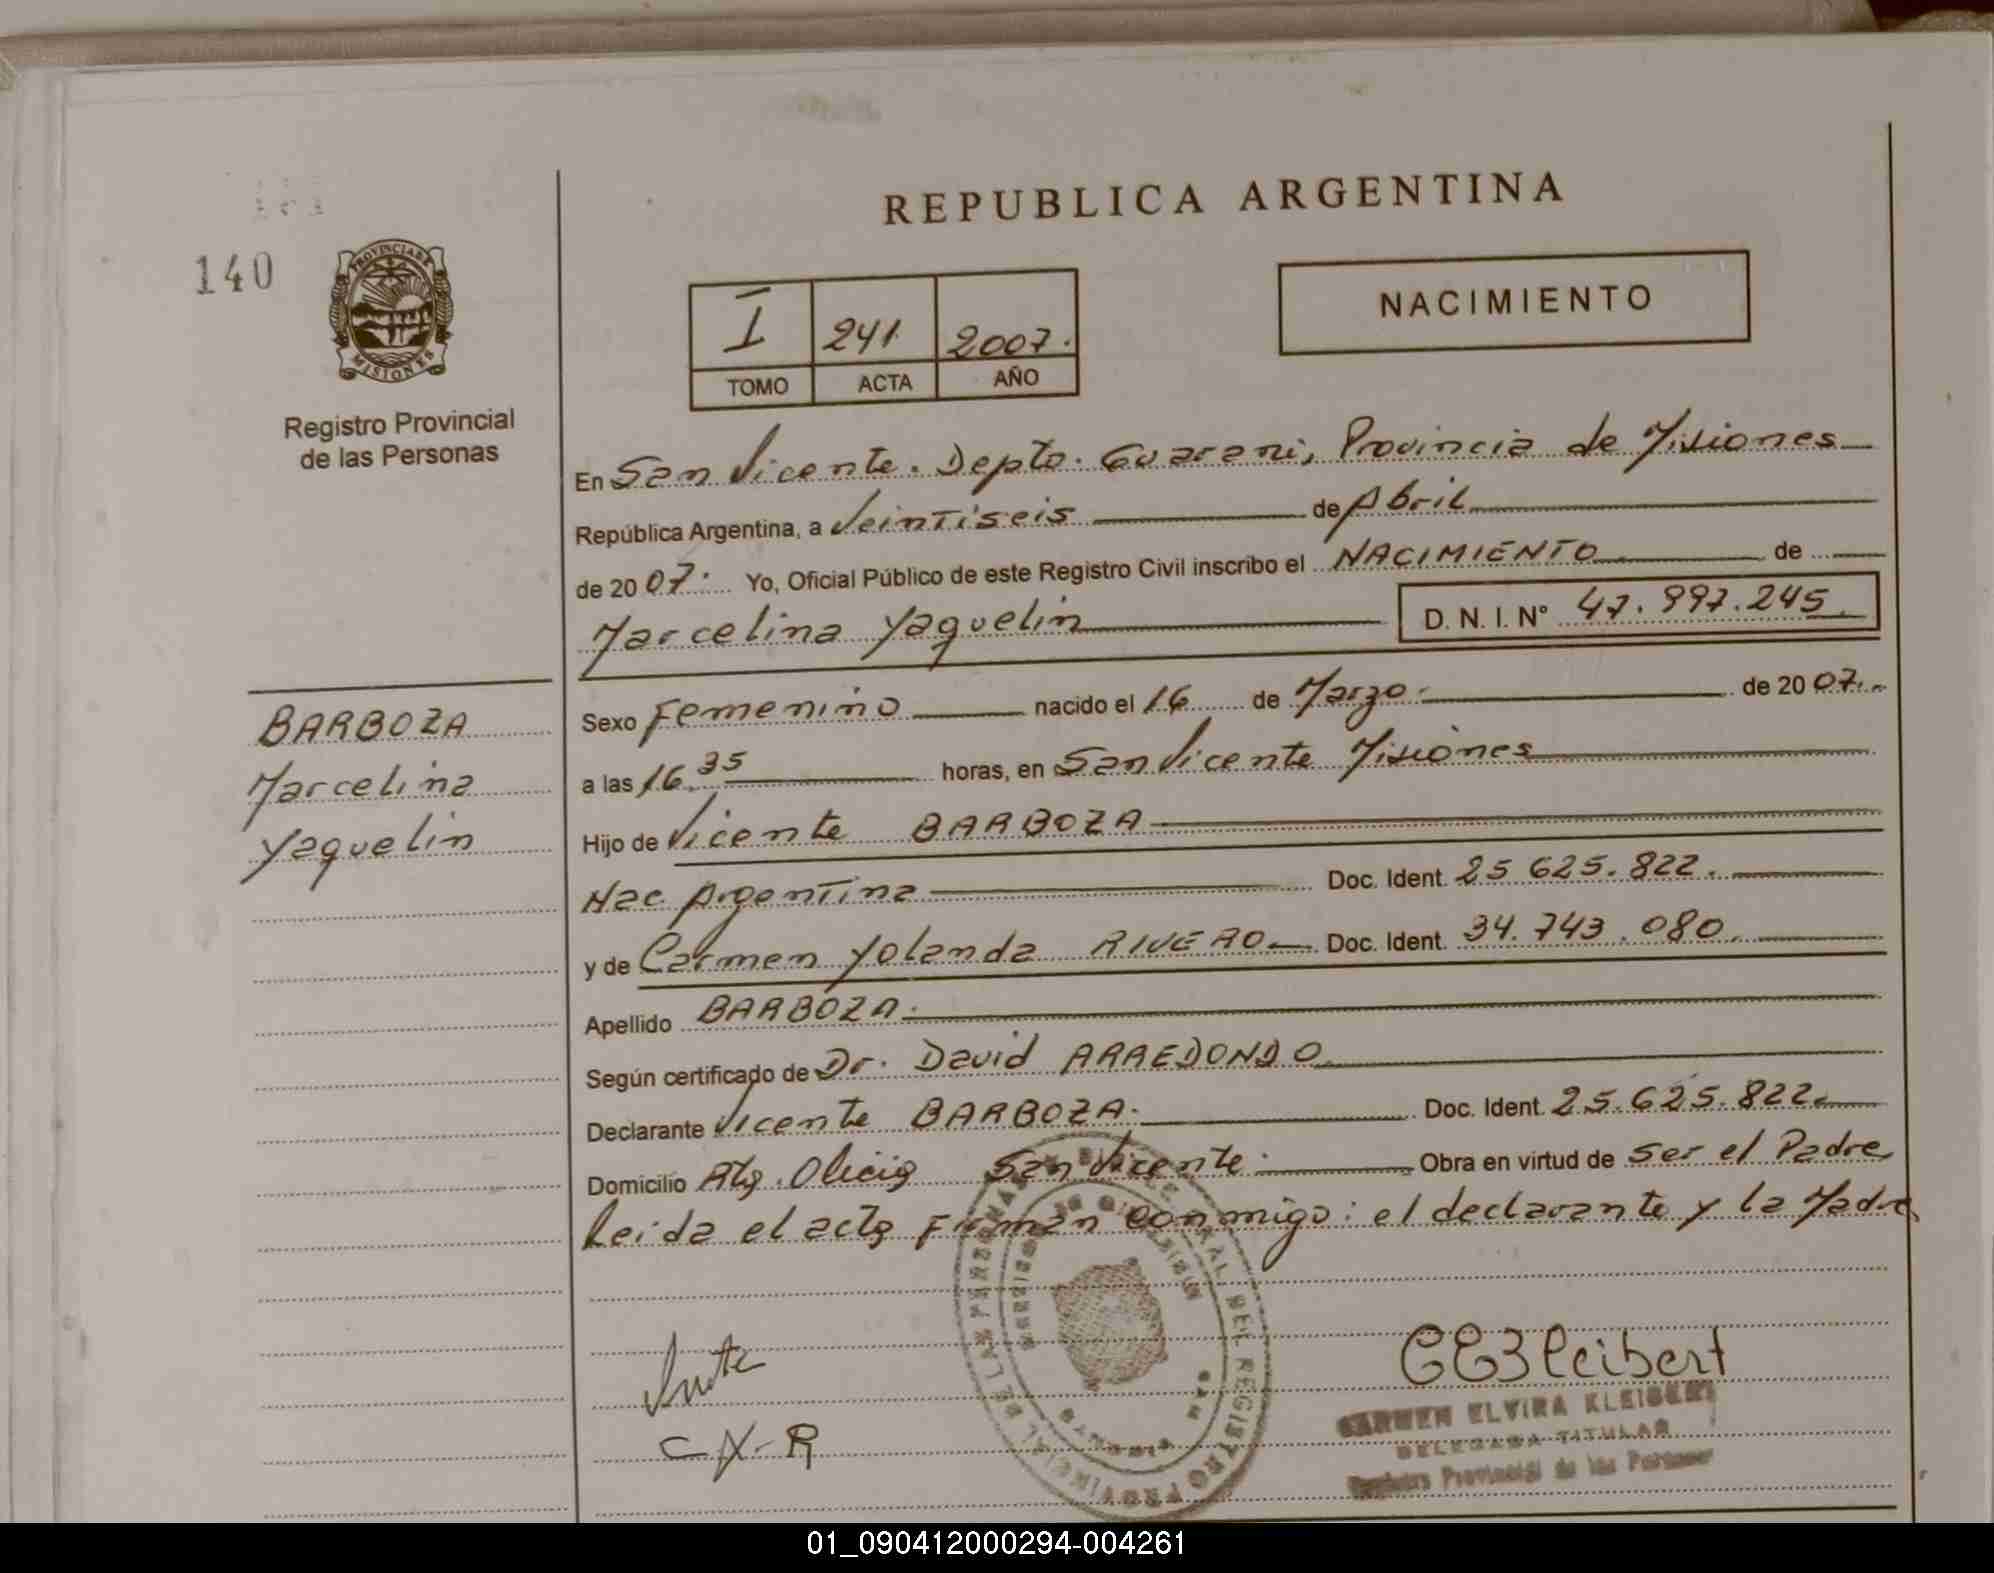 REPUBLICA ARGENTINA
140
PROVINCIA DE
MISIONES
Registro Provincial
de las Personas
I 241 2007.
TOMO ACTA AÑO
NACIMIENTO
En San Vicente. Depto. Guarani, Provincia de Misiones
República Argentina, a Veintiseis de Abril
de 2007. Yo, Oficial Público de este Registro Civil inscribo el NACIMIENTO de
Marcelina Yaquelin D. N. I. N° 47.997.245
Sexo Femenino nacido el 16 de Marzo. de 2007.
a las 16.35 horas, en San Vicente Misiones
Hijo de Vicente BARBOZA
Nac. Argentina Doc. Ident. 25 625.822.
y de Carmen Yolanda RIVERO Doc. Ident. 34.743.080.
Apellido BARBOZA.
Según certificado de Dr. David ARREDONDO
Declarante Vicente BARBOZA. Doc. Ident. 25.625.822.
Domicilio San Vicente. Obra en virtud de ser el Padre
Leida el acta Firman Conmigo: el declarante y la Madre
BARBOZA
Marcelina
Yaquelin
C Y- R
CEKleibert
CARMEN ELVIRA KLEIBERT
DELEGADA TITULAR
Registro Provincial de las Personas
01_090412000294-004261